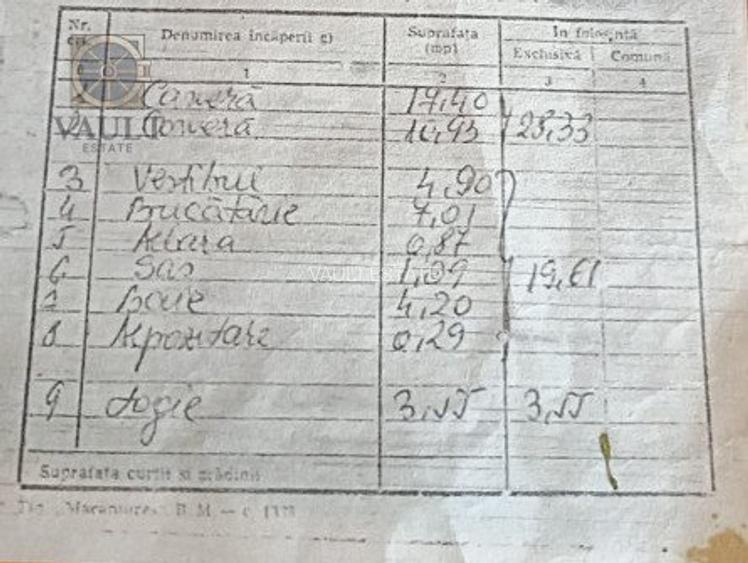 Nr. crt. Denumirea încăperii c) Suprafața (mp) In folosință
Exclusivă Comună
1 2 3 4
Cameră 17,40
VAULT
Cameră 10,93 28,33
ESTATE
3 Vestibul 4,90
4 Bucătărie 7,01
5
0,87
6 Sas 19,61
7 Baie 4,20
8 0,29
9 Logie 3,55 3,55
Suprafata curții și grădinii